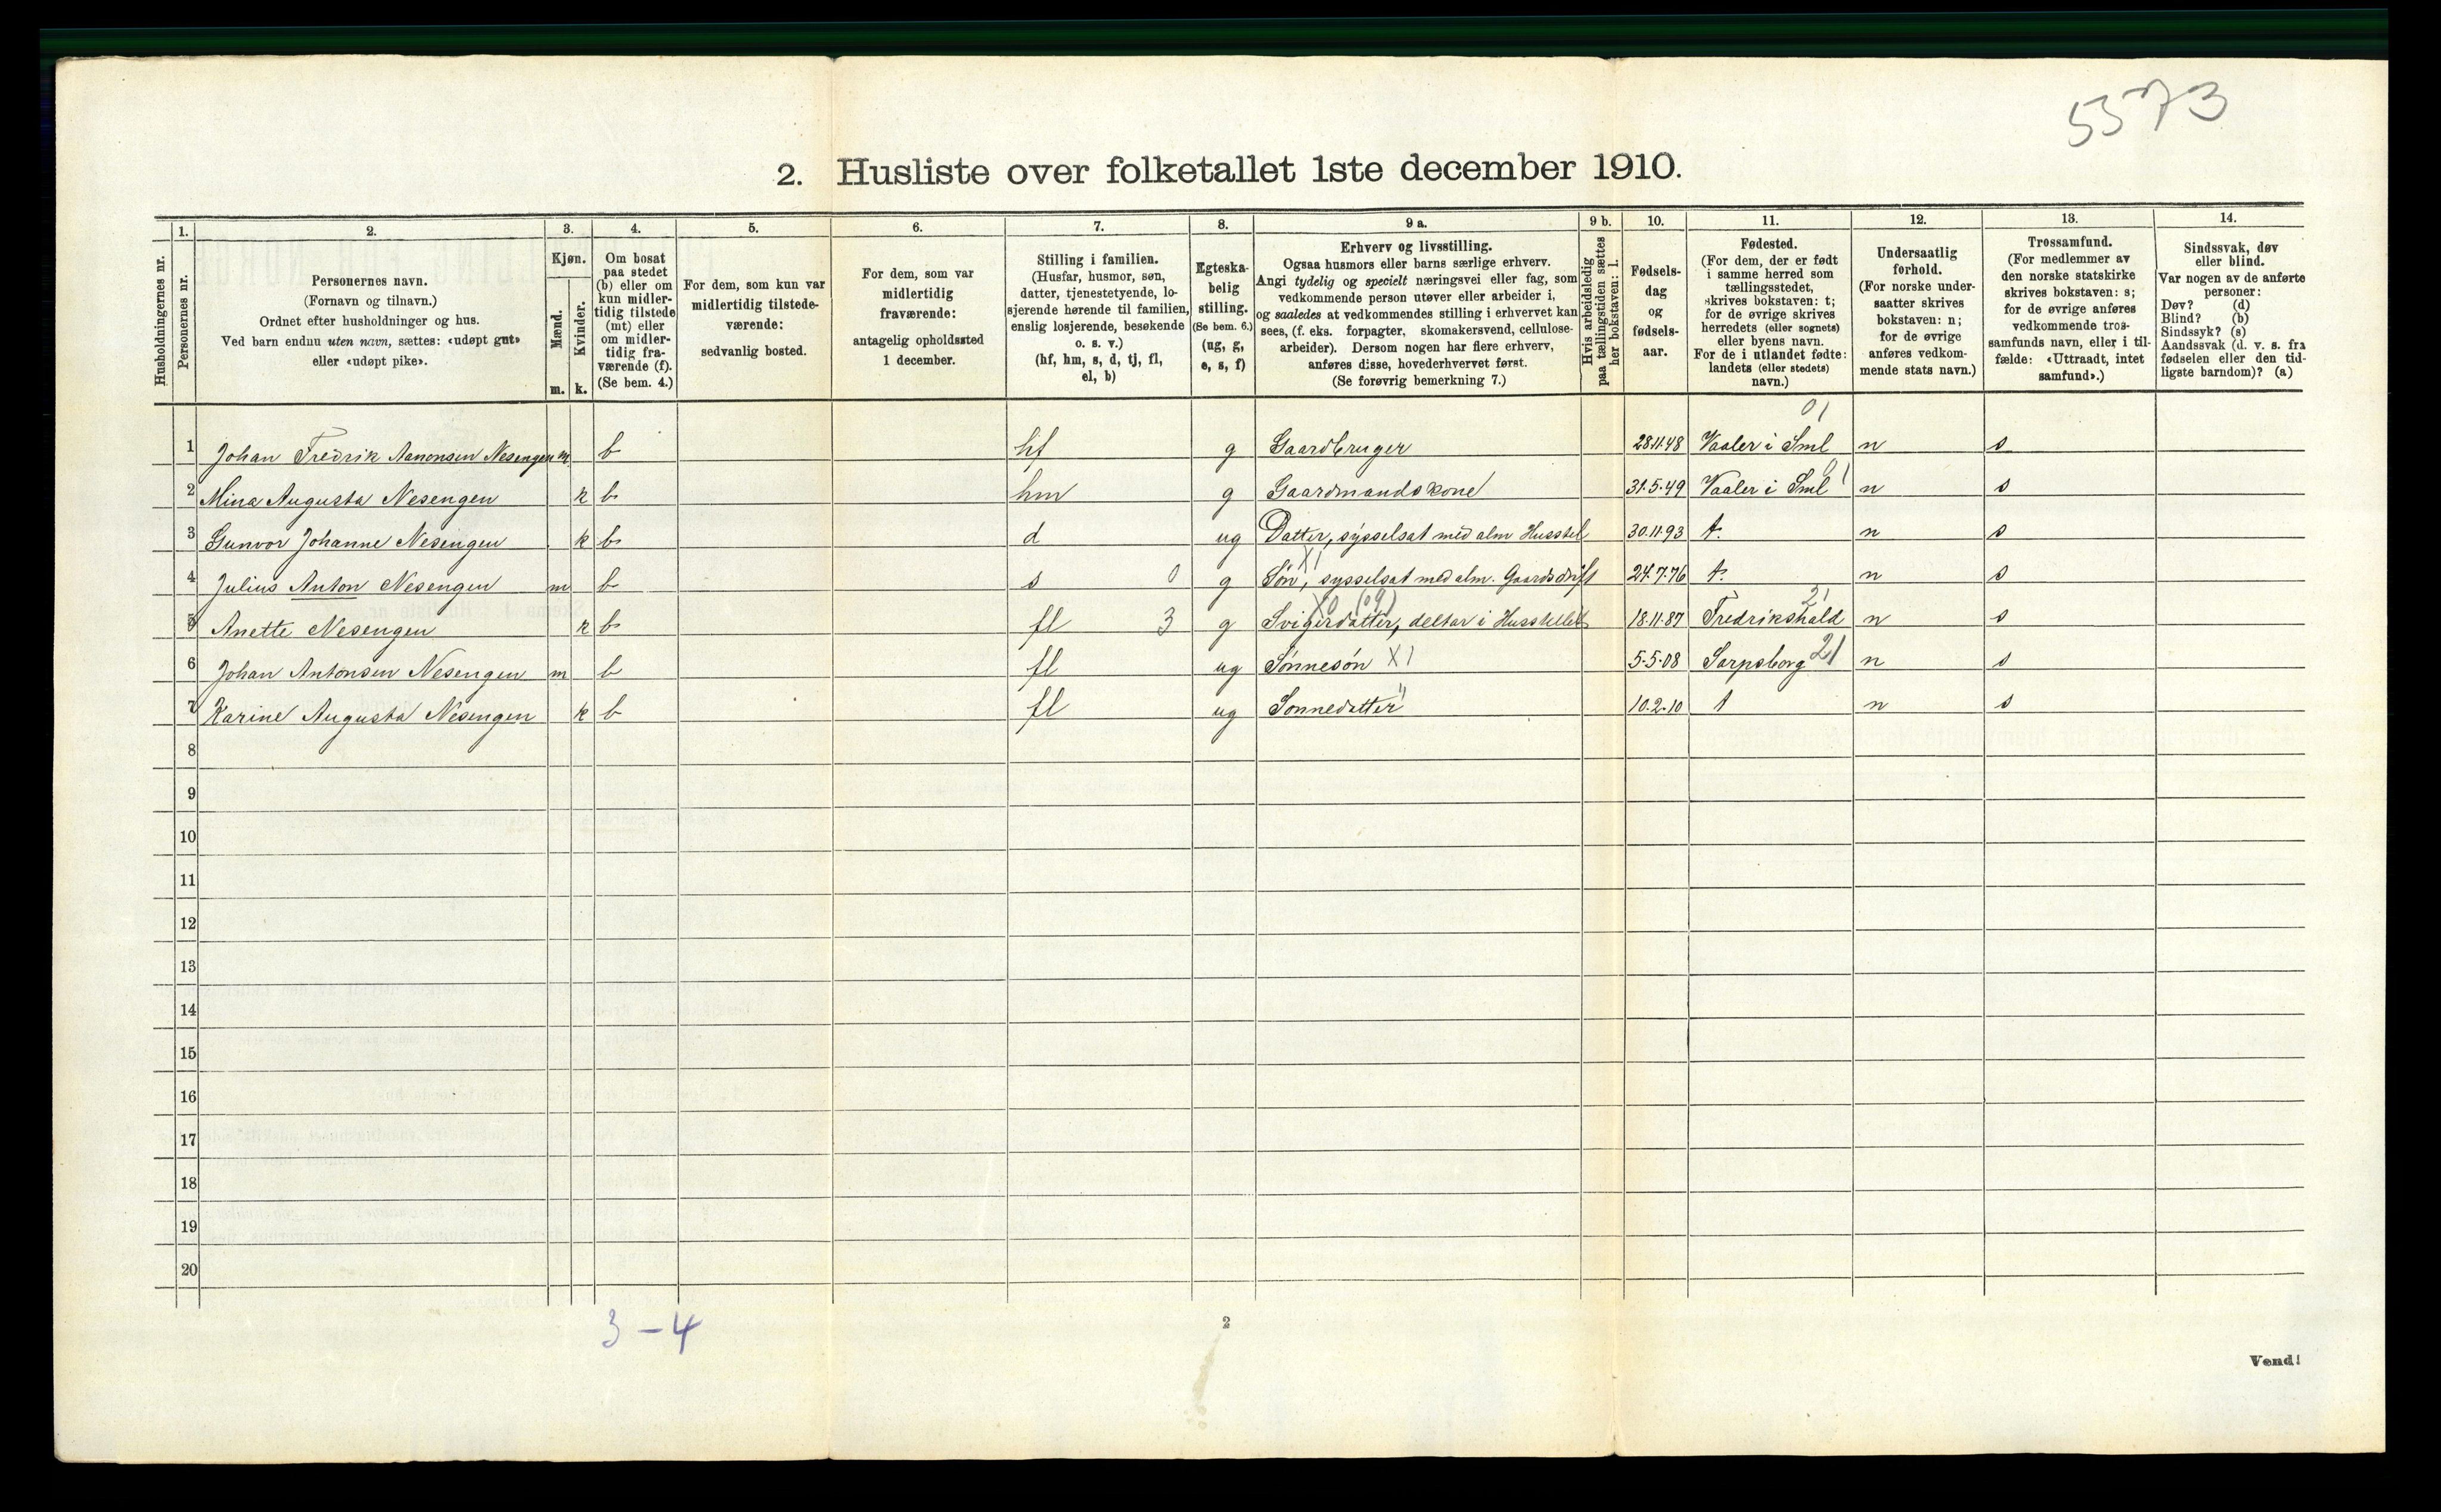 5573
2. Husliste over folketallet 1ste december 1910.
1. 2. 3. 4. 5. 6. 7. 8. 9 a. 9 b. 10. 11. 12. 13. 14.
Husholdningernes nr.
Personernes nr.
Personernes navn.
(Fornavn og tilnavn.)
Ordnet efter husholdninger og hus.
Ved barn endnu uten navn, sættes: «udøpt gut»
eller «udøpt pike».
Kjøn.
Mænd.
Kvinder.
m. k.
Om bosat
paa stedet
(b) eller om
kun midler-
tidig tilstede
(mt) eller
om midler-
tidig fra-
værende (f).
(Se bem. 4.)
For dem, som kun var
midlertidig tilstede-
værende:
sedvanlig bosted.
For dem, som var
midlertidig
fraværende:
antagelig opholdssted
1 december.
Stilling i familien.
(Husfar, husmor, søn,
datter, tjenestetyende, lo-
sjerende hørende til familien,
enslig losjerende, besøkende
o. s. v.)
(hf, hm, s, d, tj, fl,
el, b)
Egteska-
belig
stilling.
(Se bem. 6.)
(ug, g,
e, s, f)
Erhverv og livsstilling.
Ogsaa husmors eller barns særlige erhverv.
Angi tydelig og specielt næringsvei eller fag, som
vedkommende person utøver eller arbeider i,
og saaledes at vedkommendes stilling i erhvervet kan
sees, (f. eks. forpagter, skomakersvend, cellulose-
arbeider). Dersom nogen har flere erhverv,
anføres disse, hovederhvervet først.
(Se forøvrig bemerkning 7.)
Hvis arbeidsledig
paa tællingstiden sættes
her bokstaven: l.
Fødsels-
dag
og
fødsels-
aar.
Fødested.
(For dem, der er født
i samme herred som
tællingsstedet,
skrives bokstaven: t;
for de øvrige skrives
herredets (eller sognets)
eller byens navn.
For de i utlandet fødte:
landets (eller stedets)
navn.)
Undersaatlig
forhold.
(For norske under-
saatter skrives
bokstaven: n;
for de øvrige
anføres vedkom-
mende stats navn.)
Trossamfund.
(For medlemmer av
den norske statskirke
skrives bokstaven: s;
for de øvrige anføres
vedkommende tros-
samfunds navn, eller i til-
fælde: «Uttraadt, intet
samfund».)
Sindssvak, døv
eller blind.
Var nogen av de anførte
personer:
Døv? (d)
Blind? (b)
Sindssyk? (s)
Aandssvak (d. v. s. fra
fødselen eller den tid-
ligste barndom)? (a)
01
1 Johan Fredrik Aanonsen Nesengen m b hf g Gaardbruger 28.11.48 Vaaler i Sml n s
01
2 Mina Augusta Nesengen k b hm g Gaardmandskone 31.5.49 Vaaler i Sml n s
3 Gunvor Johanne Nesengen k b d ug Datter, sysselsat med alm Husstel 30.11.93 t. n s
X1
4 Julius Anton Nesengen m b s 0 g Søn, sysselsat med alm. Gaardsdrift 24.7.76 t. n s
X0 (09) 21
5 Anette Nesengen k b fl 3 g Svigerdatter, deltar i Husstellet 18.11.87 Fredrikshald n s
6 Johan Antonsen Nesengen m b fl ug Sønnesøn X1 5.5.08 Sarpsborg 21 n s
7 Karine Augusta Nesengen k b fl ug Sønnedatter " 10.2.10 t n s
8
9
10
11
12
13
14
15
16
17
18
19
20
3-4
2
Vend!